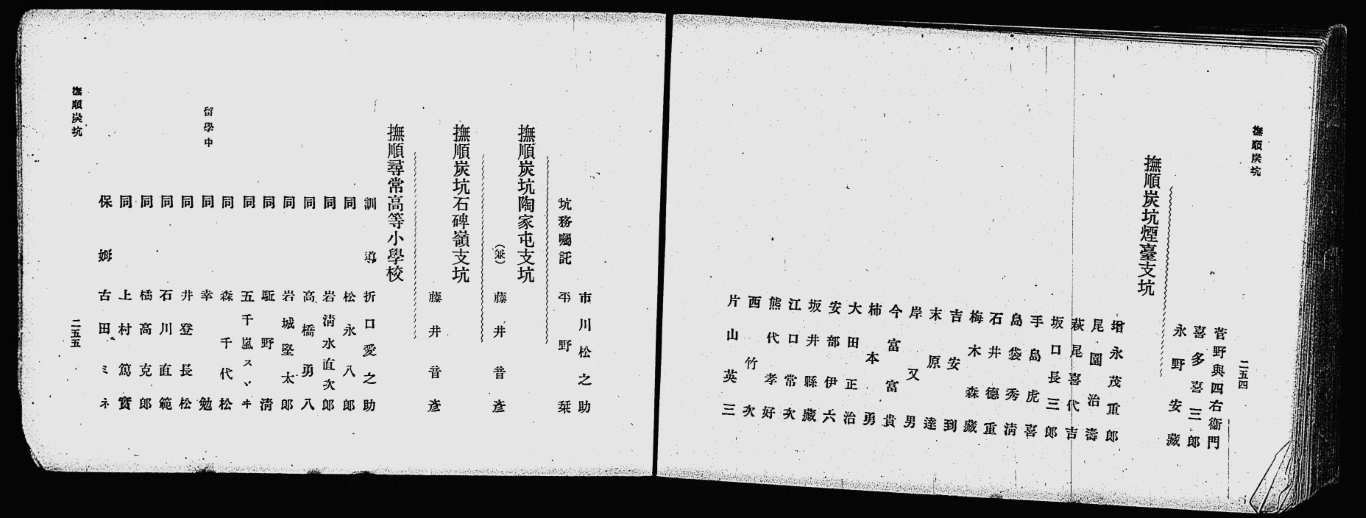 撫順炭坑
二五四
菅野與四右衞門
喜多喜三郎
永野安藏
撫順炭坑煙臺支坑
增永茂重郎
尾園治壽
萩尾喜代吉
坂口長三郎
手島虎喜
島袋秀淸
石井德重
梅木森藏
吉安到
末原達
岸又男
今富富貴
柿本勇
大田正治
安部伊六
坂井縣藏
江口常次
熊代孝好
西竹次
片山英三
市川松之助
坑務囑託 平野榮
撫順炭坑陶家屯支坑
(兼) 藤井音彥
撫順炭坑石碑嶺支坑
藤井音彥
撫順尋常高等小學校
訓導 折口愛之助
同 松永八郎
同 岩淸水直次郎
同 高橋勇八
同 岩城堅太郎
同 駈野淸
同 五千嵐スヾヰ
同 森千代松
留學中 同 幸勉
同 井登長松
同 石川直範
同 橘高克郎
同 上村篤實
保姆 古田ミネ
撫順炭坑
二五五